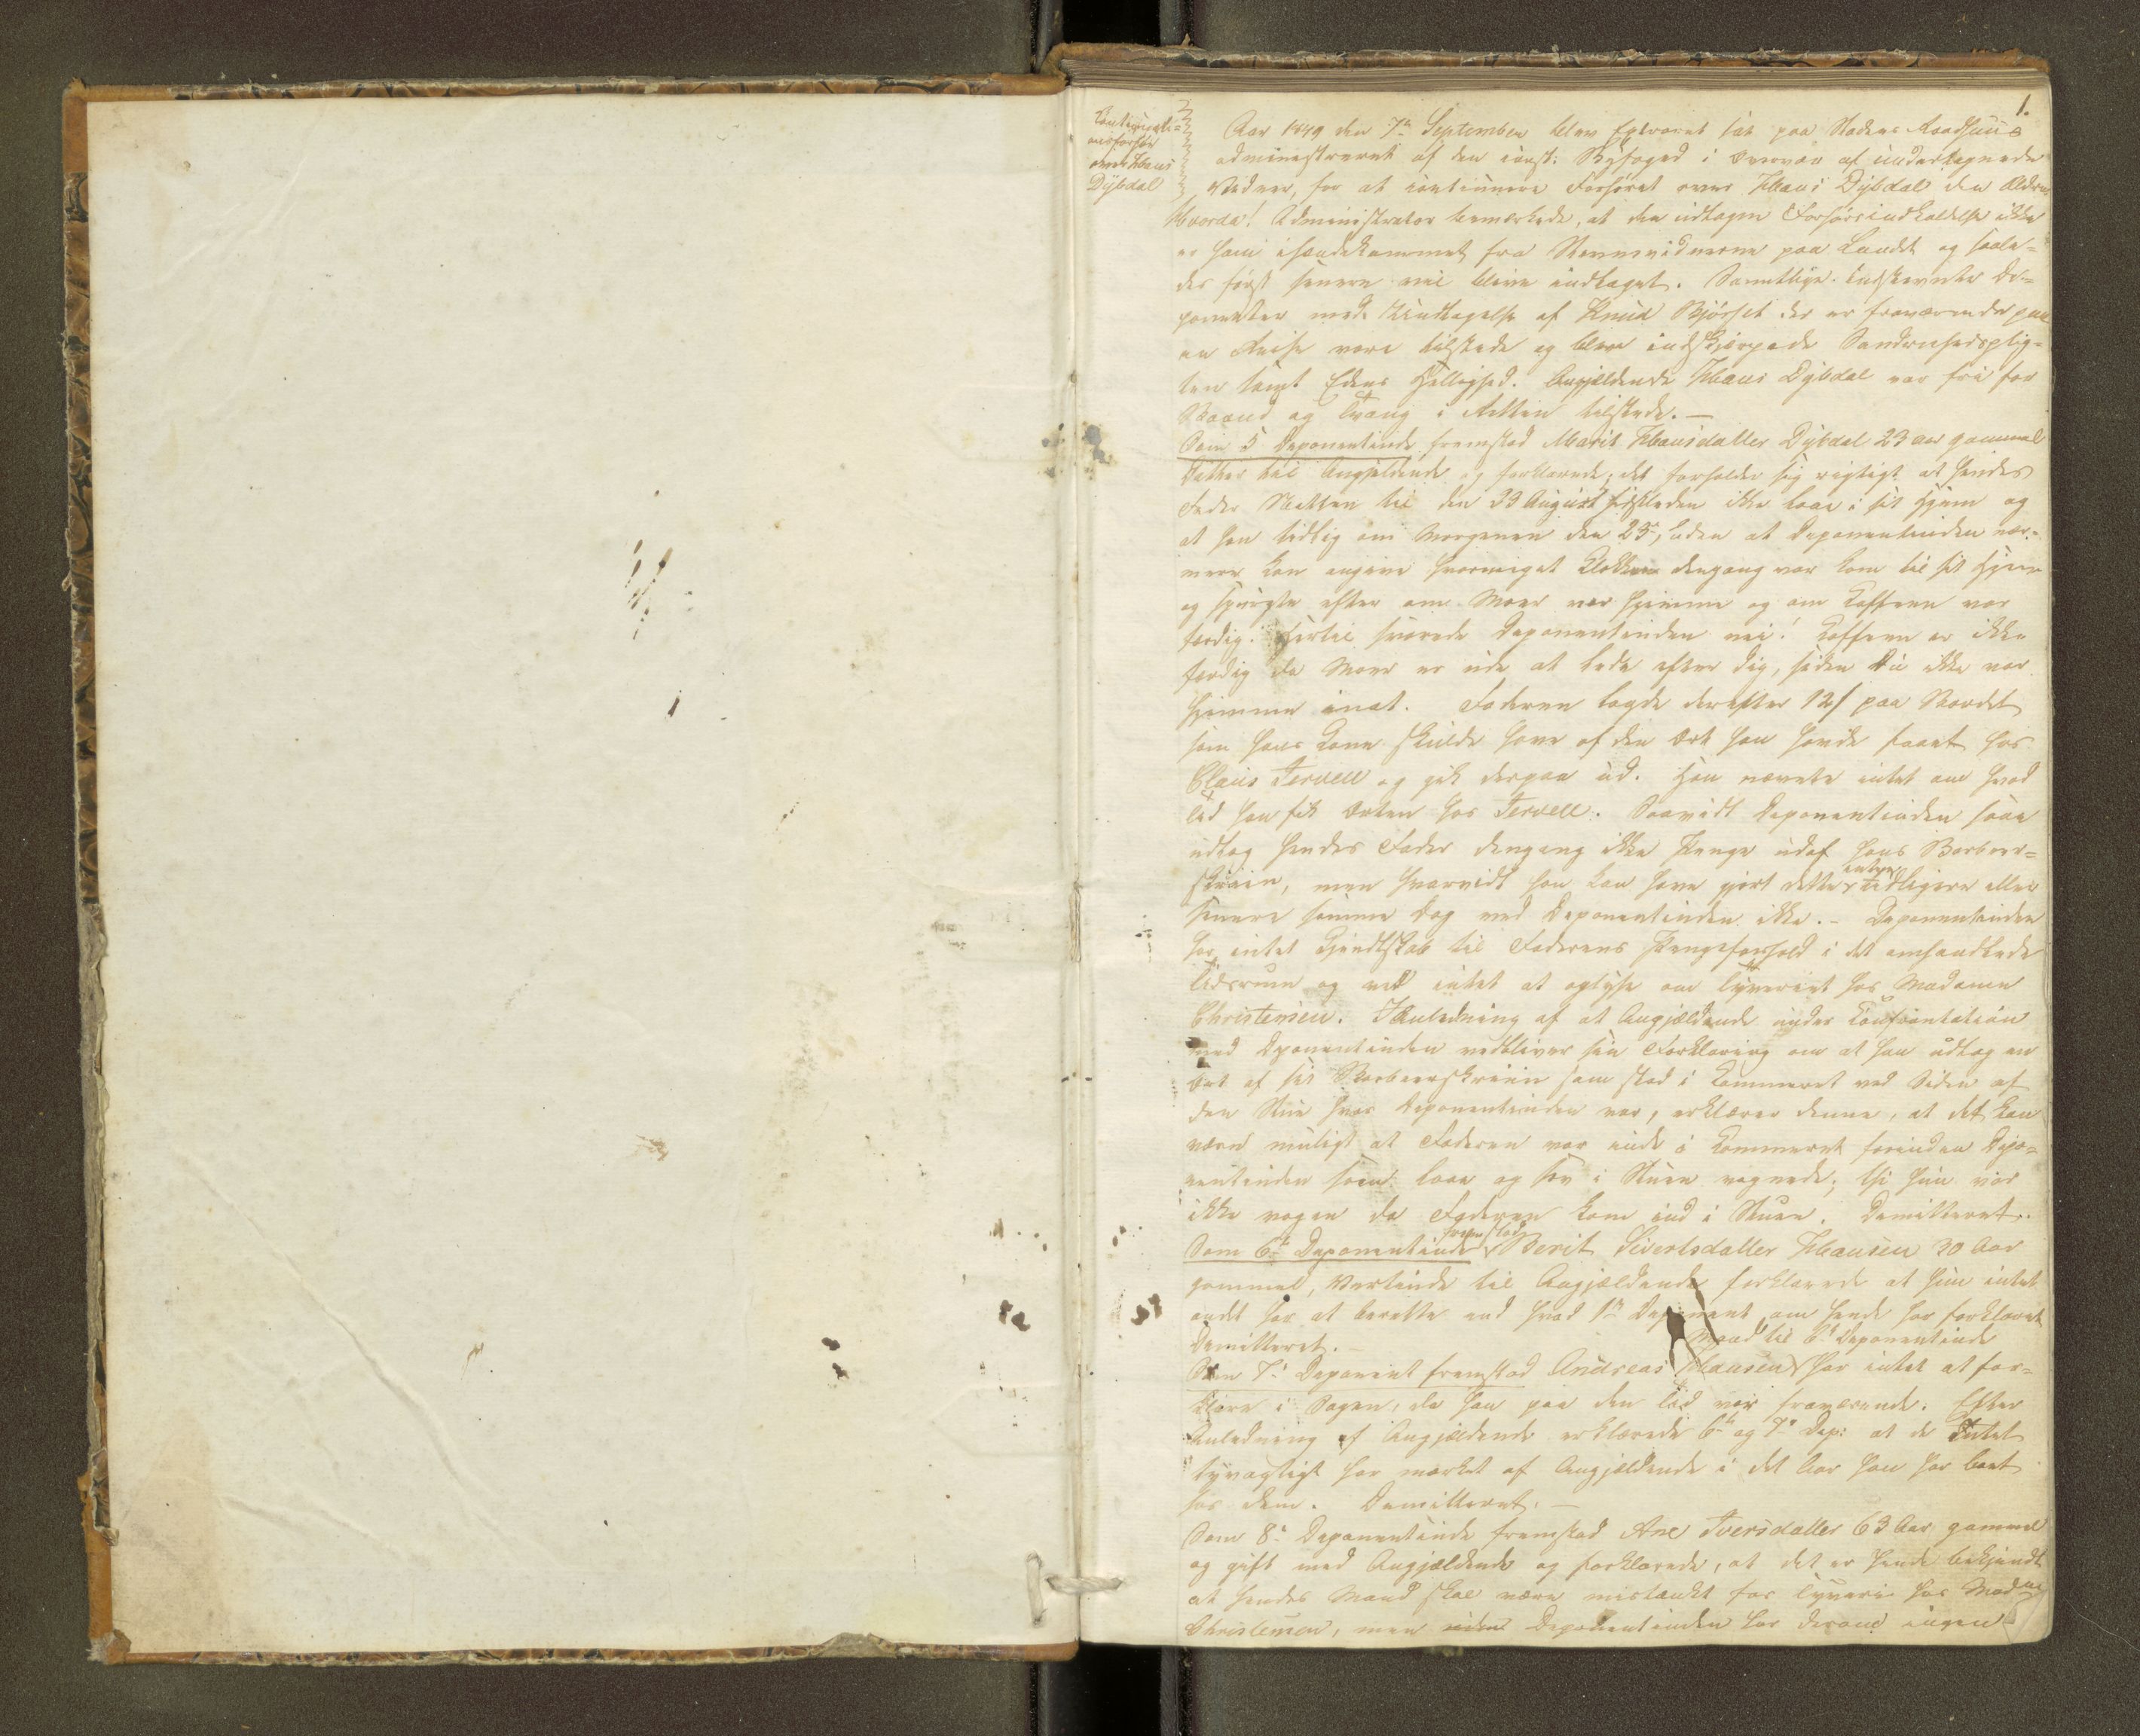 1.
Continuati=
onsforhør
over Klaus
Dÿbdal
Aar 1849 den 7de September blev Extraret sat paa Stadens Raadhuus
administreret af den const: Byfoged i Overvær af undertegnede
Vidner, for at continuere Forhøret over Klaus Dÿbdal den Ældre
Hvorda! Administrator bemærkede, at den udtagne Forhørsindkaldelse ikke
er ham ihændekommet fra Stevnevidnerne paa Landet og saale=
des først senere vil blive indtaget. Samtlige indstevnte De=
ponenter med Undtagelse af Knud Bjørset der er fraværende paa
en Reise vare tilstede og blev indskjærpede Sandhedsplig=
ten samt Edens Hellighed. Angjældende Klaus Dÿbdal var fri for
Baand og Tvang i Retten tilstede. —
Som 5 Deponentinde fremstod Marit Klausdatter Dÿbdal 23 aar gammel
Datter til Angjældende og forklarede, det forholder sig rigtigt at hendes
Fader Natten til den 23 August sidstleden ikke laae i sit Hjem og
at han tidlig om Morgenen den 23de, uden at Deponentinden nær=
mere kan angive hvormeget Klokken dengang var kom til sit Hjem
og spurgte efter om Moer var hjemme og om Kaffeen var
færdig. Hertil svarede Deponentinden nei! Kaffeen er ikke
færdig da Moer er ude at lede efter dig, siden Du ikke var
hjemme inat. Faderen lagde derefter 12 s paa Bordet
som hans Kone skulde have af den Ort han havde faaet hos
Claus Tervell og gik derpaa ud. Han nævnte intet om hvad
Tid han fik Orten hos Tervell. Saavidt Deponentinden saae
udtog hendes Fader dengang ikke Penge udaf hans Barbeer=
skriin, men hvorvidt han kan have gjort dette enten tidligere eller
senere samme Dag ved Deponentinden ikke. – Deponentinden
har intet Kjendtskab til Faderens Pengeforhold i det omhandlede
Tidsrum og ved intet at oplyse om Tyveriet hos Madamm
Christensen. I Anledning af at Angjældende under Confrontation
med Dponentinden vedbliver sin Forklaring om at han udtog en
Ort af sit Barbeerskriin som stod i Kammeret ved Siden af
den Stue hvor Deponentinden var, erklærer denne, at det kan
være muligt at Faderen var inde i Kammeret forinden Depo=
nentinden som laae og sov i Stuen vognede; thi hun var
ikke vogen da Faderen kom ind i Stuen. Demitteret.
Som 6te Deponentinde fremstod Berit Sivertsdatter Klausen 30 Aar
gammel, Vertinde til Angjældende forklarede at hun intet
andet har at berette end hvad 1ste Deponent om hende har forklaret
Demitteret. –
Som 7de Deponent fremstod Andreas Klausen Mand til 6te Deponentinde har intet at for=
klare i Sagen, da han paa den Tid var fraværende. Efter
Anledning af Angjældende erklærede 6te og 7de Dep: at de Intet
tyvagtigt har mærket af Angjældende i det Aar han har boet
hos dem. Demitteret. —
Som 8de Deponentinde fremstod Ane Iversdatter 63 Aar gammel
og gift med Angjældende og forklarede, at det er hende bekjendt
at hendes Mand skal være mistænkt for Tyveri hos Madme
Christensen, men Deponentinden har derom ingen